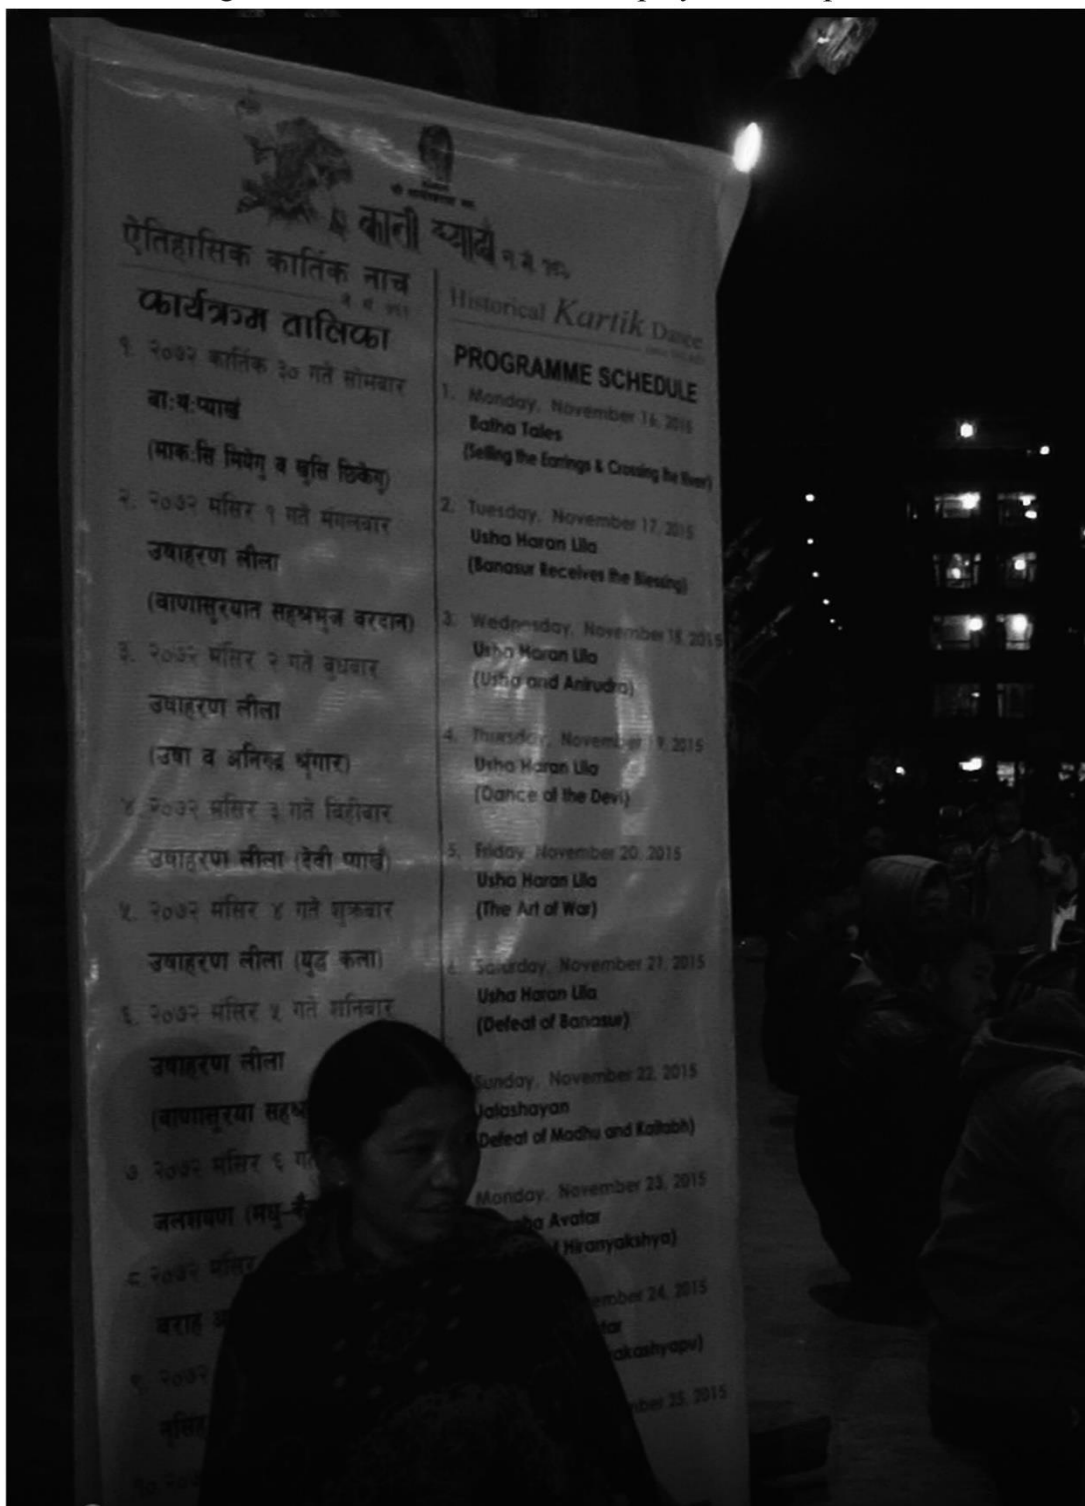 काती प्याखँ
ऐतिहासिक कार्तिक नाच
कार्यक्रम तालिका
१. २०७२ कार्तिक ३० गते सोमबार
बाःथःप्याखं
(माकःसि मियेगु व खुसि छिकेगु)
२. २०७२ मंसिर १ गते मंगलबार
उषाहरण लीला
(वाणासुरयात सहश्रभुज वरदान)
३. २०७२ मंसिर २ गते बुधबार
उषाहरण लीला
(उषा व अनिरुद्र श्रृंगार)
४. २०७२ मंसिर ३ गते बिहीबार
उषाहरण लीला (देवी प्याखँ)
५. २०७२ मंसिर ४ गते शुक्रबार
उषाहरण लीला (युद्ध कला)
६. २०७२ मंसिर ५ गते शनिबार
उषाहरण लीला
(वाणासुरया
७ २०७२ मंसिर ६
जलशयण (मधु-
८ २०७२ मंसिर
बराह
९. २०७२
नृसिंह
१०
Historical Kartik Dance
PROGRAMME SCHEDULE
1. Monday, November 16, 2015
Batha Tales
(Selling the Earrings & Crossing the River)
2. Tuesday, November 17, 2015
Usha Haran Lila
(Banasur Receives the Blessing)
3. Wednesday, November 18, 2015
Usha Haran Lila
(Usha and Anirudra)
4. Thursday, November 19, 2015
Usha Haran Lila
(Dance of the Devi)
5. Friday, November 20, 2015
Usha Haran Lila
(The Art of War)
Saturday, November 21, 2015
Usha Haran Lila
(Defeat of Banasur)
Sunday, November 22, 2015
Jalashayan
Defeat of Madhu and Kaitabh)
Monday, November 23, 2015
Avatar
Hiranyakshya)
24, 2015
25, 2015